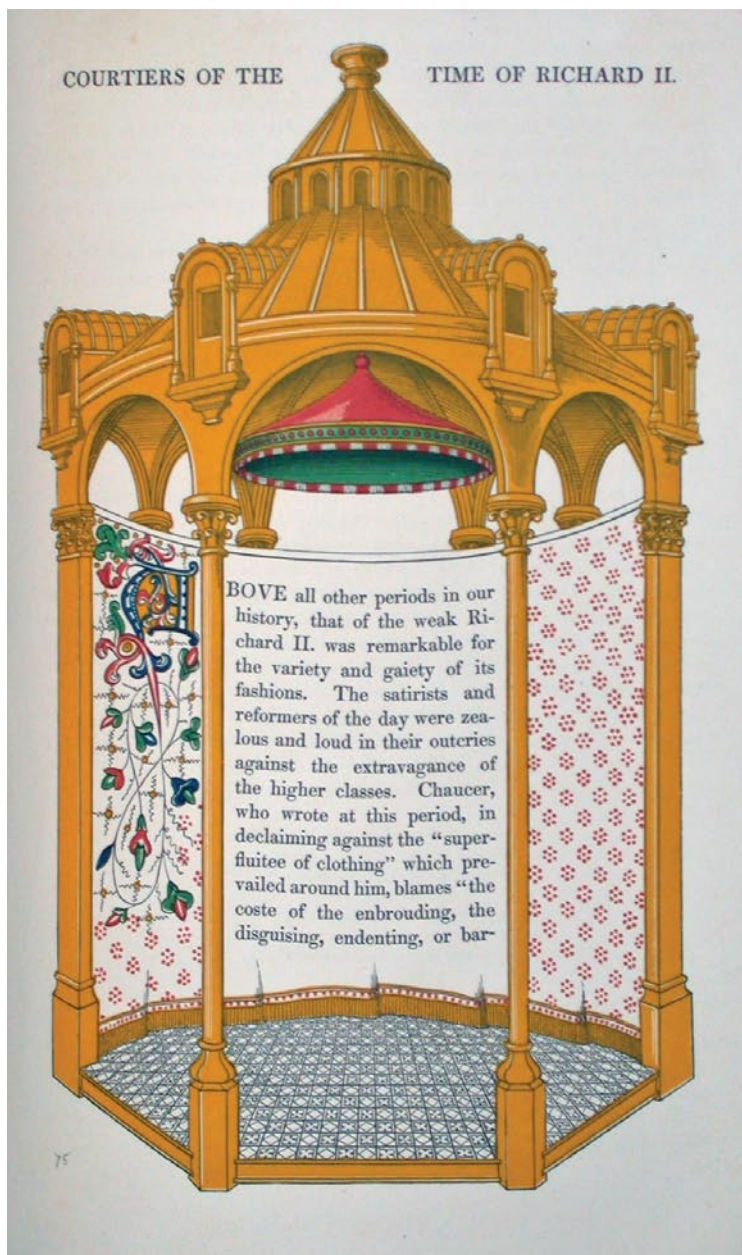 COURTIERS OF THE TIME OF RICHARD II.
ABOVE all other periods in our
history, that of the weak Ri-
chard II. was remarkable for
the variety and gaiety of its
fashions. The satirists and
reformers of the day were zea-
lous and loud in their outcries
against the extravagance of
the higher classes. Chaucer,
who wrote at this period, in
declaiming against the “super-
fluitee of clothing” which pre-
vailed around him, blames “the
coste of the enbrouding, the
disguising, endenting, or bar-
75